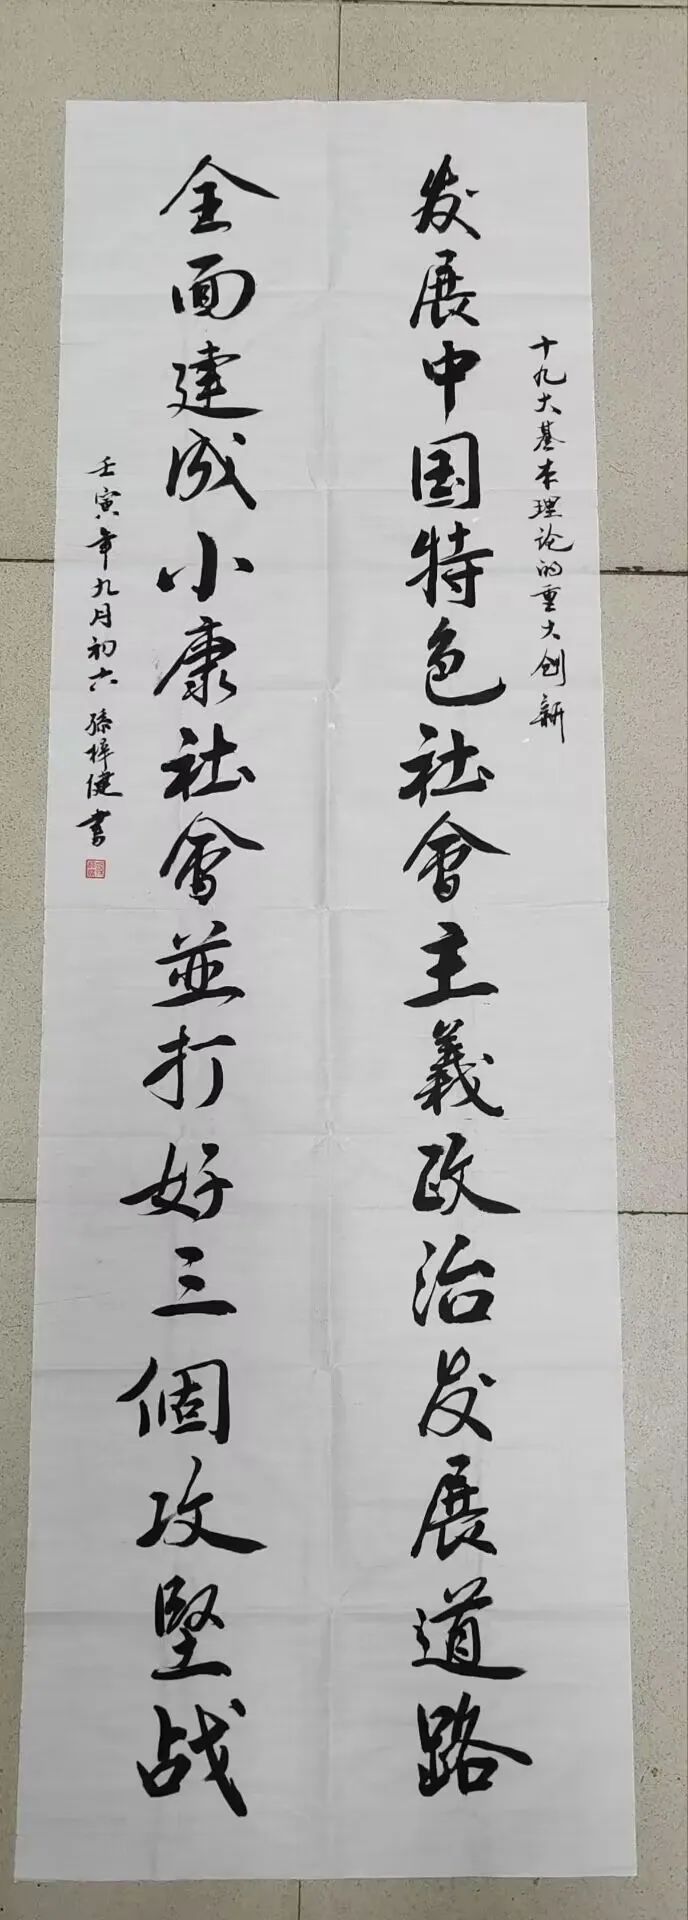 十九大基本理论的重大创新
发展中国特色社會主義政治发展道路
全面建成小康社會並打好三個攻堅战
壬寅年九月初六 孫梓健書